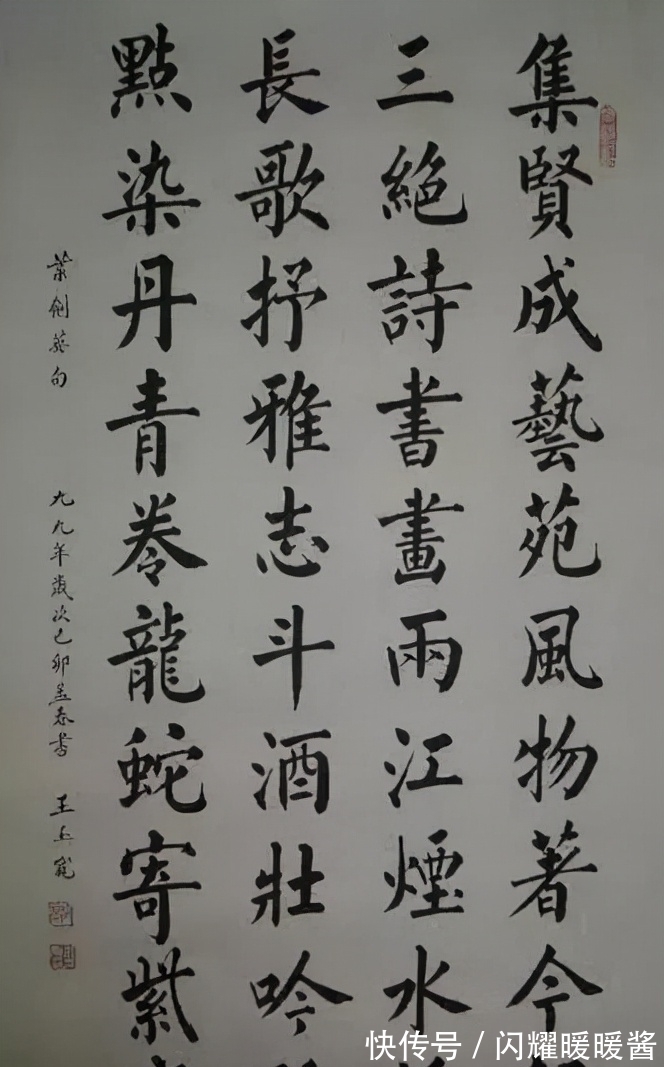 集賢成藝苑風物著今
三絕詩書畫兩江煙水
長歌抒雅志斗酒壯吟
點染丹青卷龍蛇寄紫
葉劍英句
九九年歲次己卯孟春書 王
快传号 / 闪耀暖暖酱